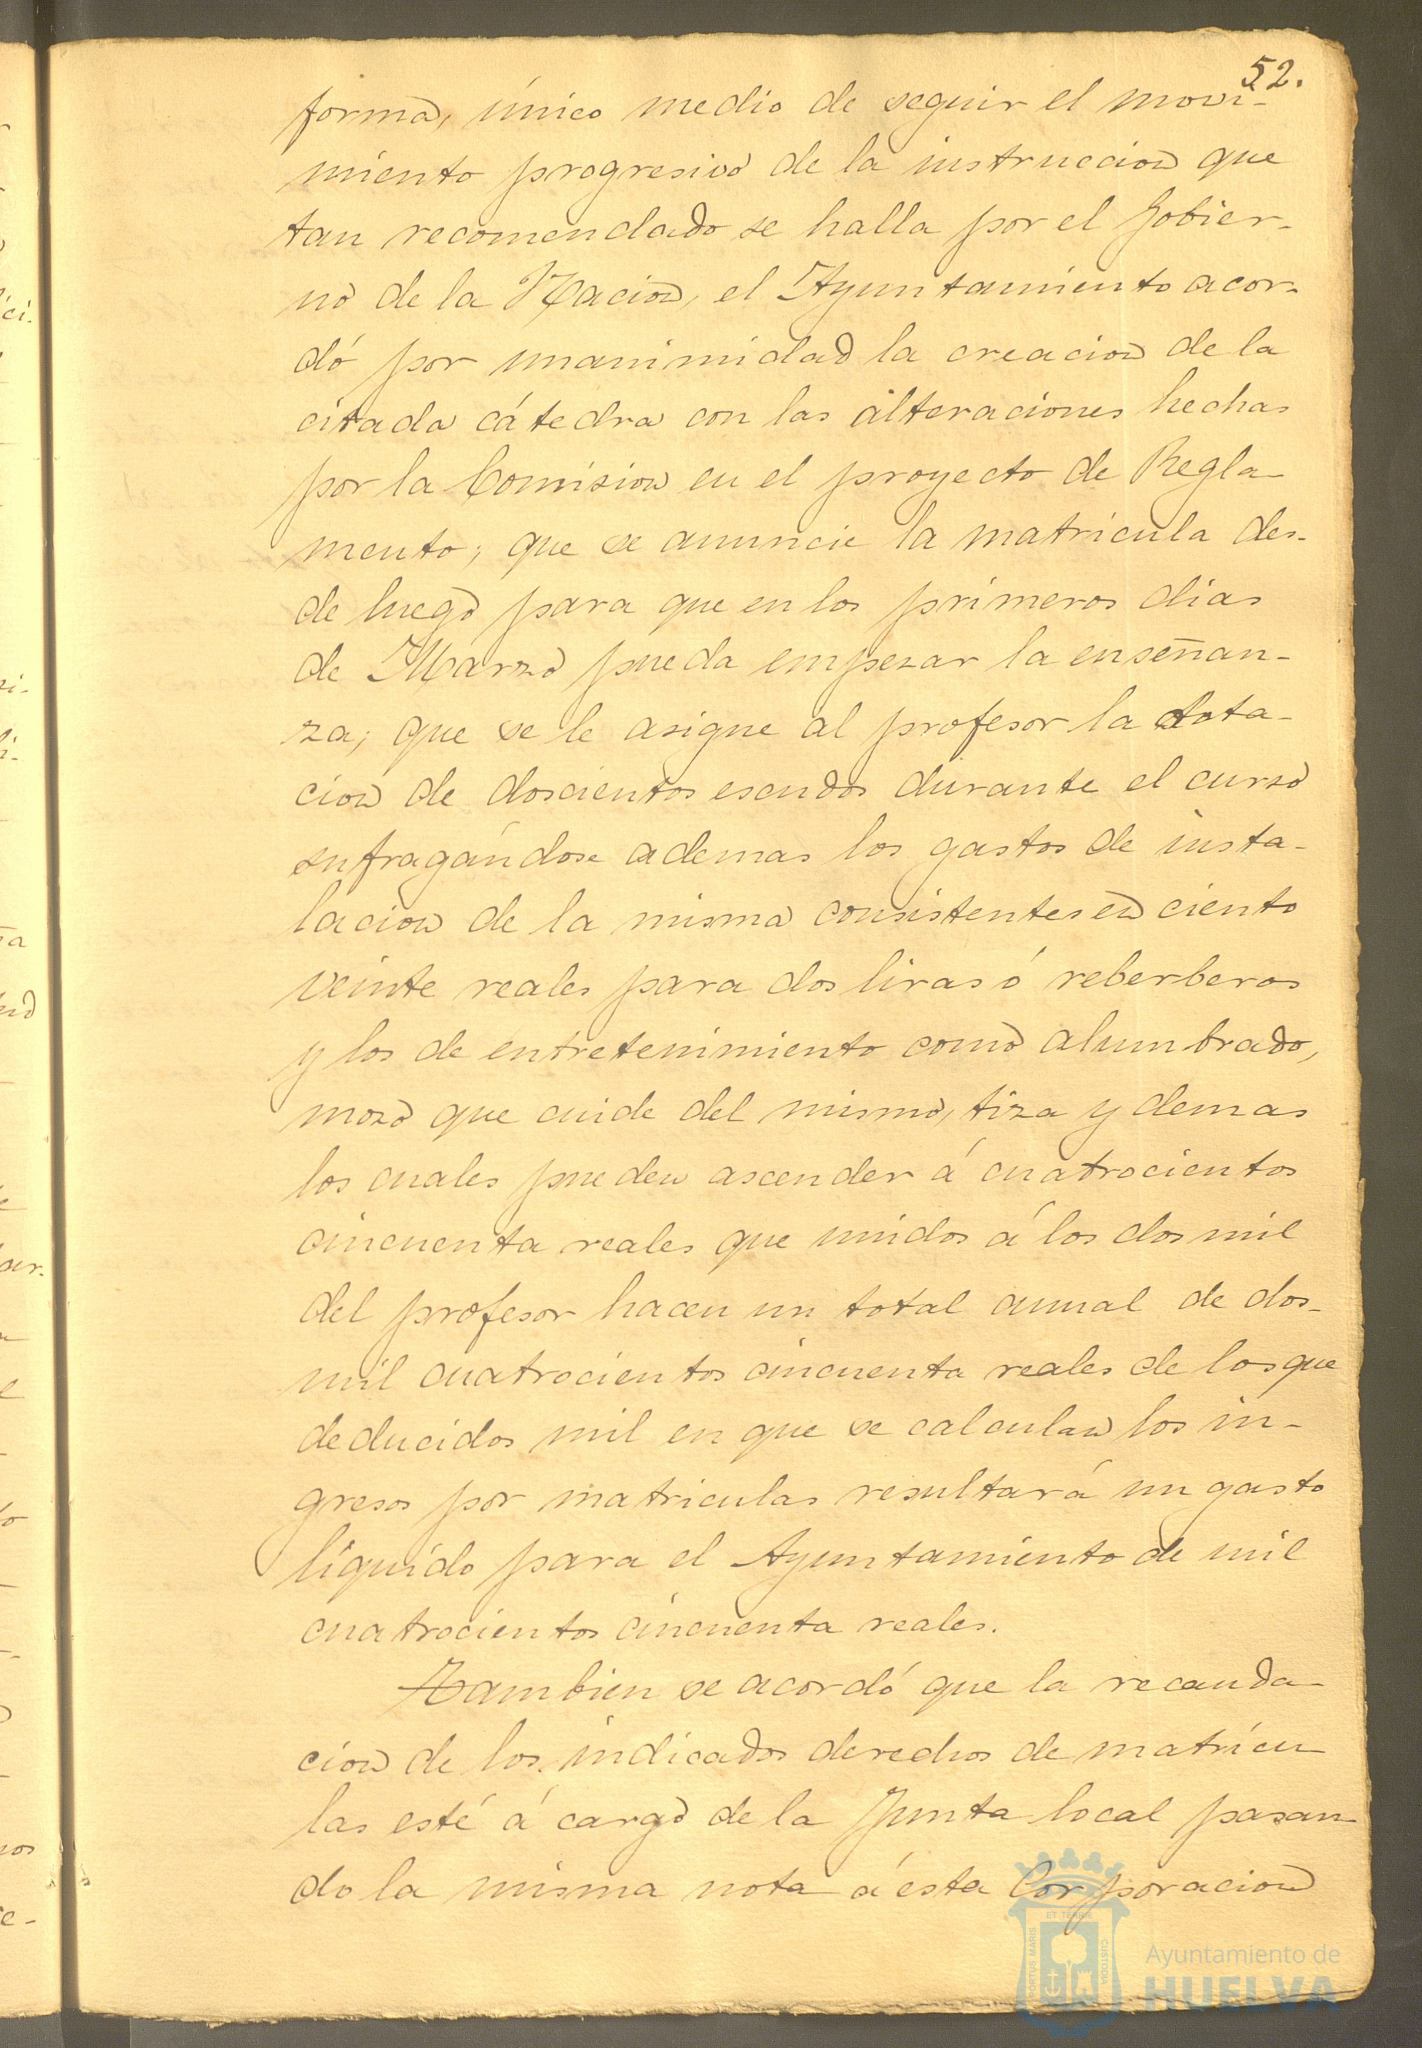 52.
forma, único medio de seguir el movi-
miento progresivo de la instruccion que
tan recomendado se halla por el Gobier-
no de la Nacion, el Ayuntamiento acor-
dó por unanimidad la creacion de la
citada cátedra con las alteraciones hechas
por la Comision en el proyecto de Regla-
mento; que se anuncie la matrícula des-
de luego para que en los primeros dias
de Marzo pueda empezar la enseñan-
za; que se le asigne al profesor la dota-
cion de doscientos escudos durante el curso
sufragándose ademas los gastos de insta-
lacion de la misma consistentes en ciento
veinte reales para dos liras ó reberberos
y los de entretenimiento como alumbrado,
mozo que cuide del mismo, tiza y demas
los cuales pueden ascender á cuatrocientos
cincuenta reales que unidos á los dos mil
del profesor hacen un total anual de dos-
mil cuatrocientos cincuenta reales de los que
deducidos mil en que se calculan los in-
gresos por matriculas resultará un gasto
líquido para el Ayuntamiento de mil
cuatrocientos cincuenta reales.
Tambien se acordó que la recauda-
cion de los indicados derechos de matrícu
las esté á cargo de la Junta local pasan-
do la misma nota á esta Corporacion
PORTUS MARIS ET TERRE CUSTODIA
Ayuntamiento de
HUELVA